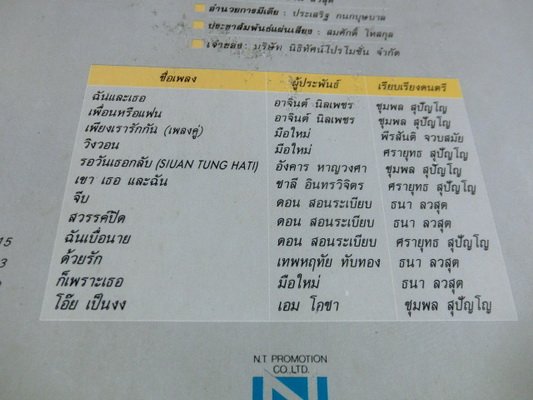 ■ อำนวยการมีเดีย : ประเสริฐ กนกบุษบาล
■ ประชาสัมพันธ์แผ่นเสียง : สมศักดิ์ โทสกุล
■ เจ้าของ : บริษัท นิธิทัศน์โปรโมชั่น จำกัด
ชื่อเพลง ผู้ประพันธ์ เรียบเรียงดนตรี
ฉันและเธอ อาจินต์ นิลเพชร ชุมพล สุปัญโญ
เพื่อนหรือแฟน อาจินต์ นิลเพชร ชุมพล สุปัญโญ
เพียงเรารักกัน (เพลงคู่) มือใหม่ พีรสันติ จวบสมัย
วิงวอน มือใหม่ ศรายุทธ สุปัญโญ
รอวันเธอกลับ (SIUAN TUNG HATI) อังคาร หาญวงศา ชุมพล สุปัญโญ
เขา เธอ และฉัน ชาลี อินทรวิจิตร ศรายุทธ สุปัญโญ
จีบ ดอน สอนระเบียบ ธนา ลวสุต
สวรรค์ปิด ดอน สอนระเบียบ ธนา ลวสุต
ฉันเบื่อนาย ดอน สอนระเบียบ ศรายุทธ สุปัญโญ
ด้วยรัก เทพหฤทัย ทับทอง ธนา ลวสุต
ก็เพราะเธอ มือใหม่ ธนา ลวสุต
โอ๊ย เป็นงง เอม โอชา ชุมพล สุปัญโญ
15
3
2
N.T PROMOTION
CO.,LTD.
N